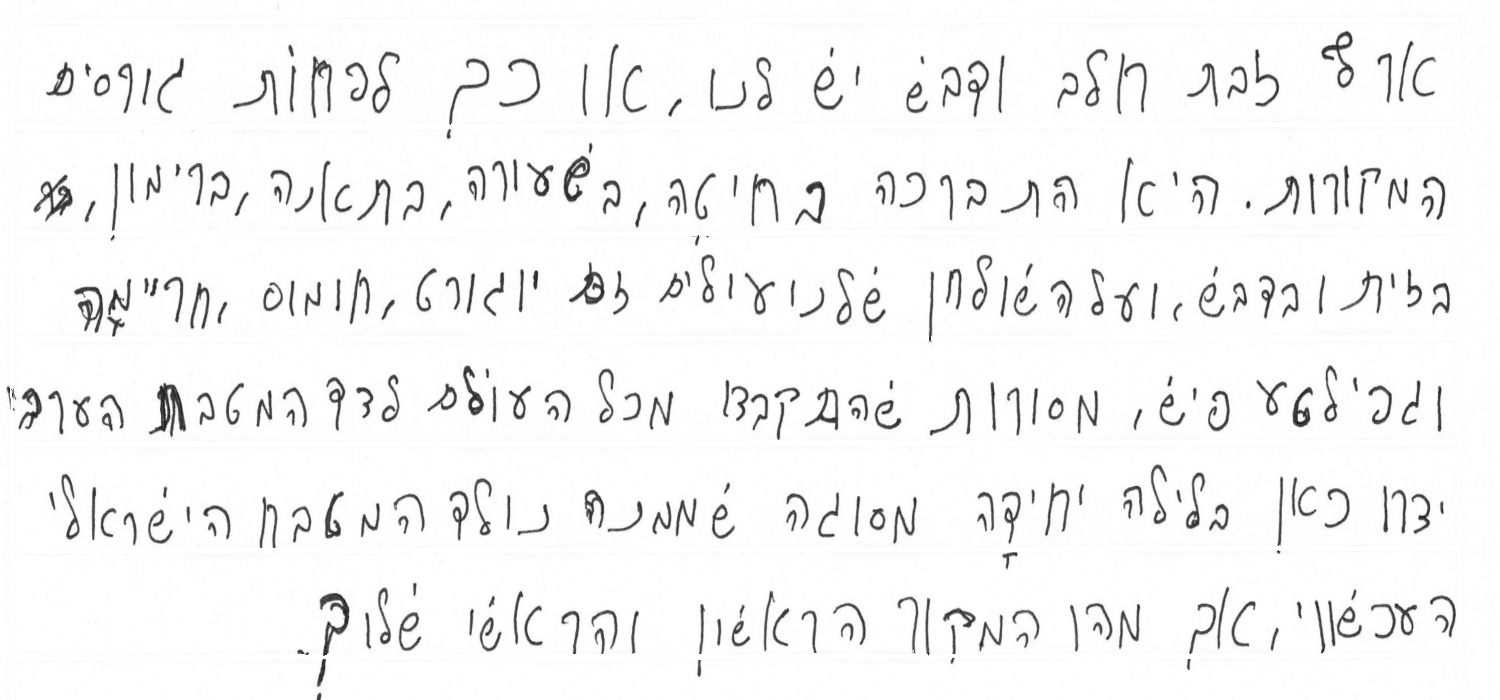 ארץ זבת חלב ודבש יש לנו, או כך לפחות גורסים
המקורות. היא התברכה בחיטה, בשעורה, בתאנה, ברימון,
בזית ובדבש, ועל השולחן שלנו עולים יוגורט, חומוס, חריימה
וגפילטע פיש, מסורות שהתקבצו מכל העולם לצד המטבח הערבי
יצרו כאן בלילה יחידה מסוגה שממנה נולד המטבח הישראלי
העכשווי, אך מהו המקור הראשון והראשי שלו?